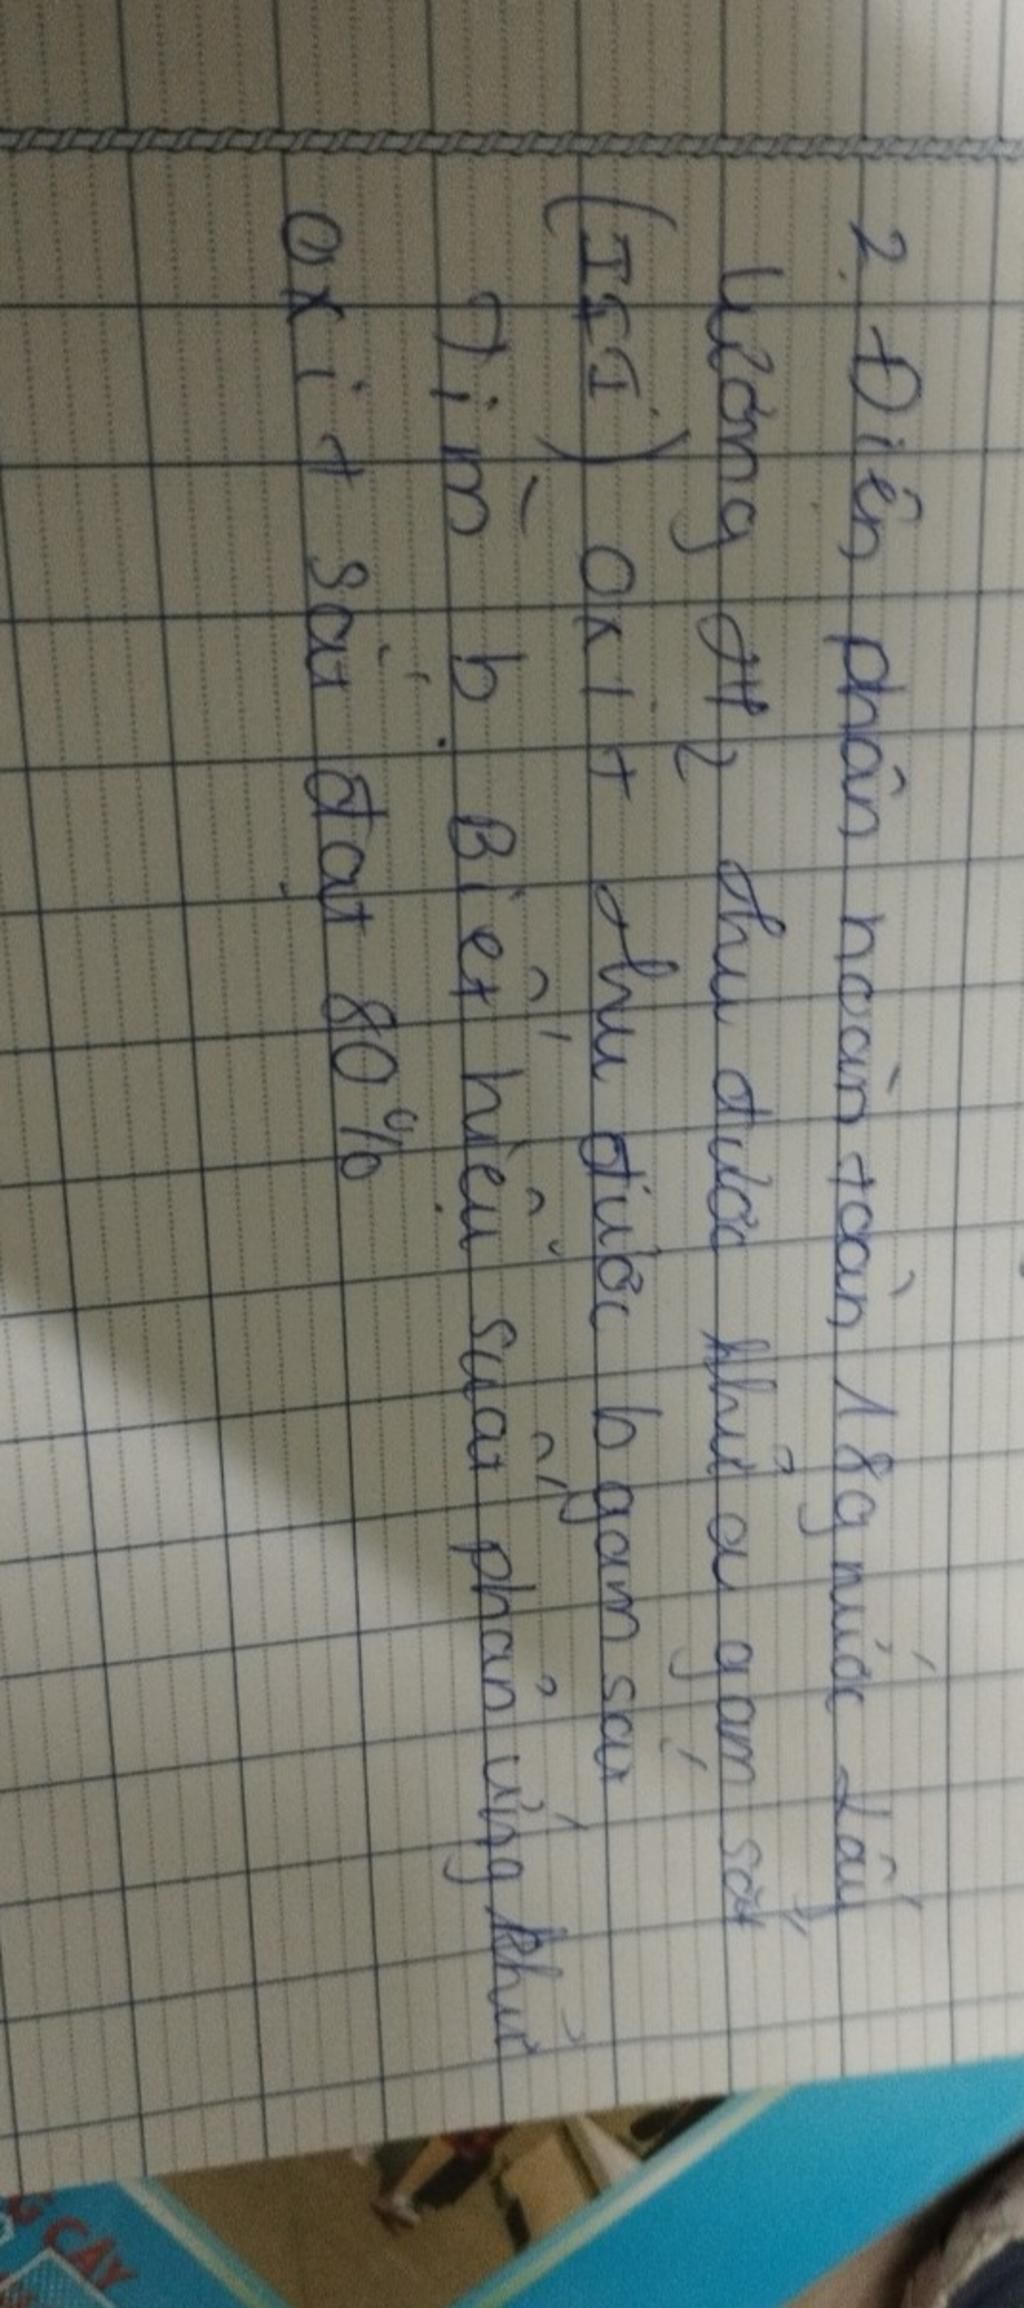 2. Điện phân hoàn toàn 18g nước Lấy
lượng H2 thu được khử a gam sắt
(III) oxit thu được b gam sắt
Tìm b. Biết hiệu suất phản ứng khử
oxit sắt đạt 80%
G CÂY